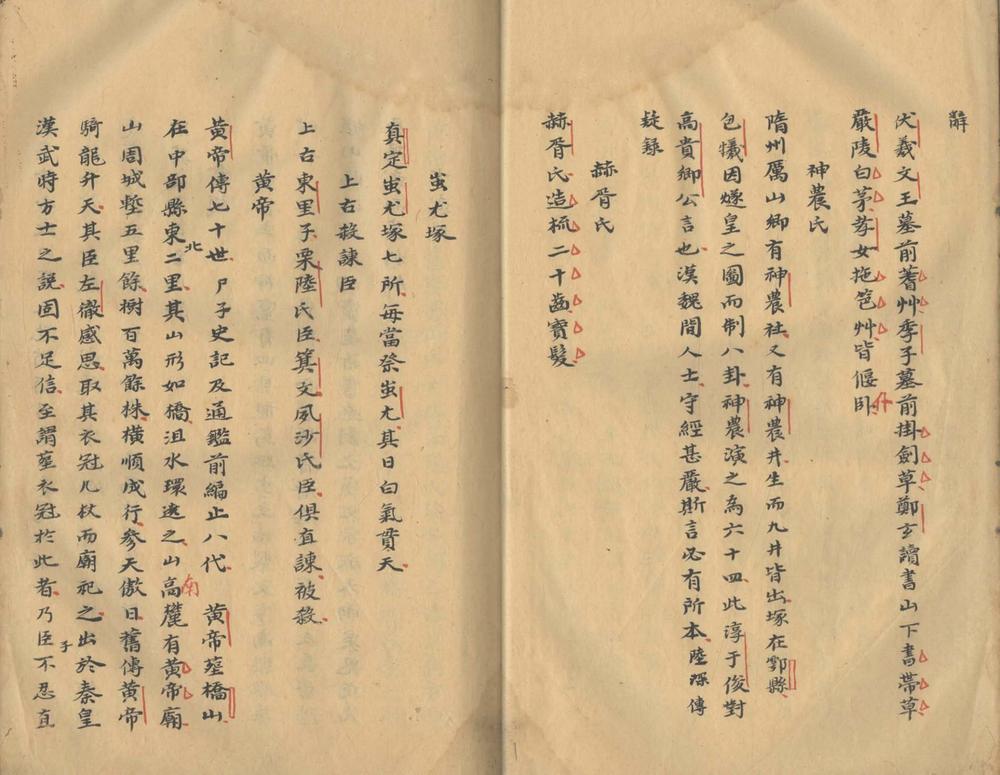 辭
伏羲文王墓前蓍艸季子墓前掛劍草鄭玄讀書山下書帶草
嚴陵白茅孝女拖笆艸皆偃臥
神農氏
隋州厲山鄉有神農社又有神農井生而九井皆出塚在酃縣
包犧因燧皇之圖而制八卦神農演之為六十四此淳于俊對
高貴鄉公言也漢魏間人士守經甚嚴斯言必有所本陸深傳
疑錄
赫胥氏
赫胥氏造梳二十齒寶髮
蚩尤塚
真定蚩尤塚七所每當祭蚩尤其日白氣貫天
上古殺諫臣
上古東里子栗陸氏臣箕文夙沙氏臣俱直諫被殺
黃帝
黃帝傳七十世尸子史記及通鑑前編止八代 黃帝塟橋山
在中部縣東北二里其山形如橋沮水環遶之山高南麓有黃帝廟
山周城塹五里餘樹百萬餘株橫順成行參天傲日舊傳黃帝
騎龍升天其臣左徹感思取其衣冠几杖而廟祀之出於秦皇
漢武時方士之說固不足信至謂塟衣冠於此者乃臣子不忍直